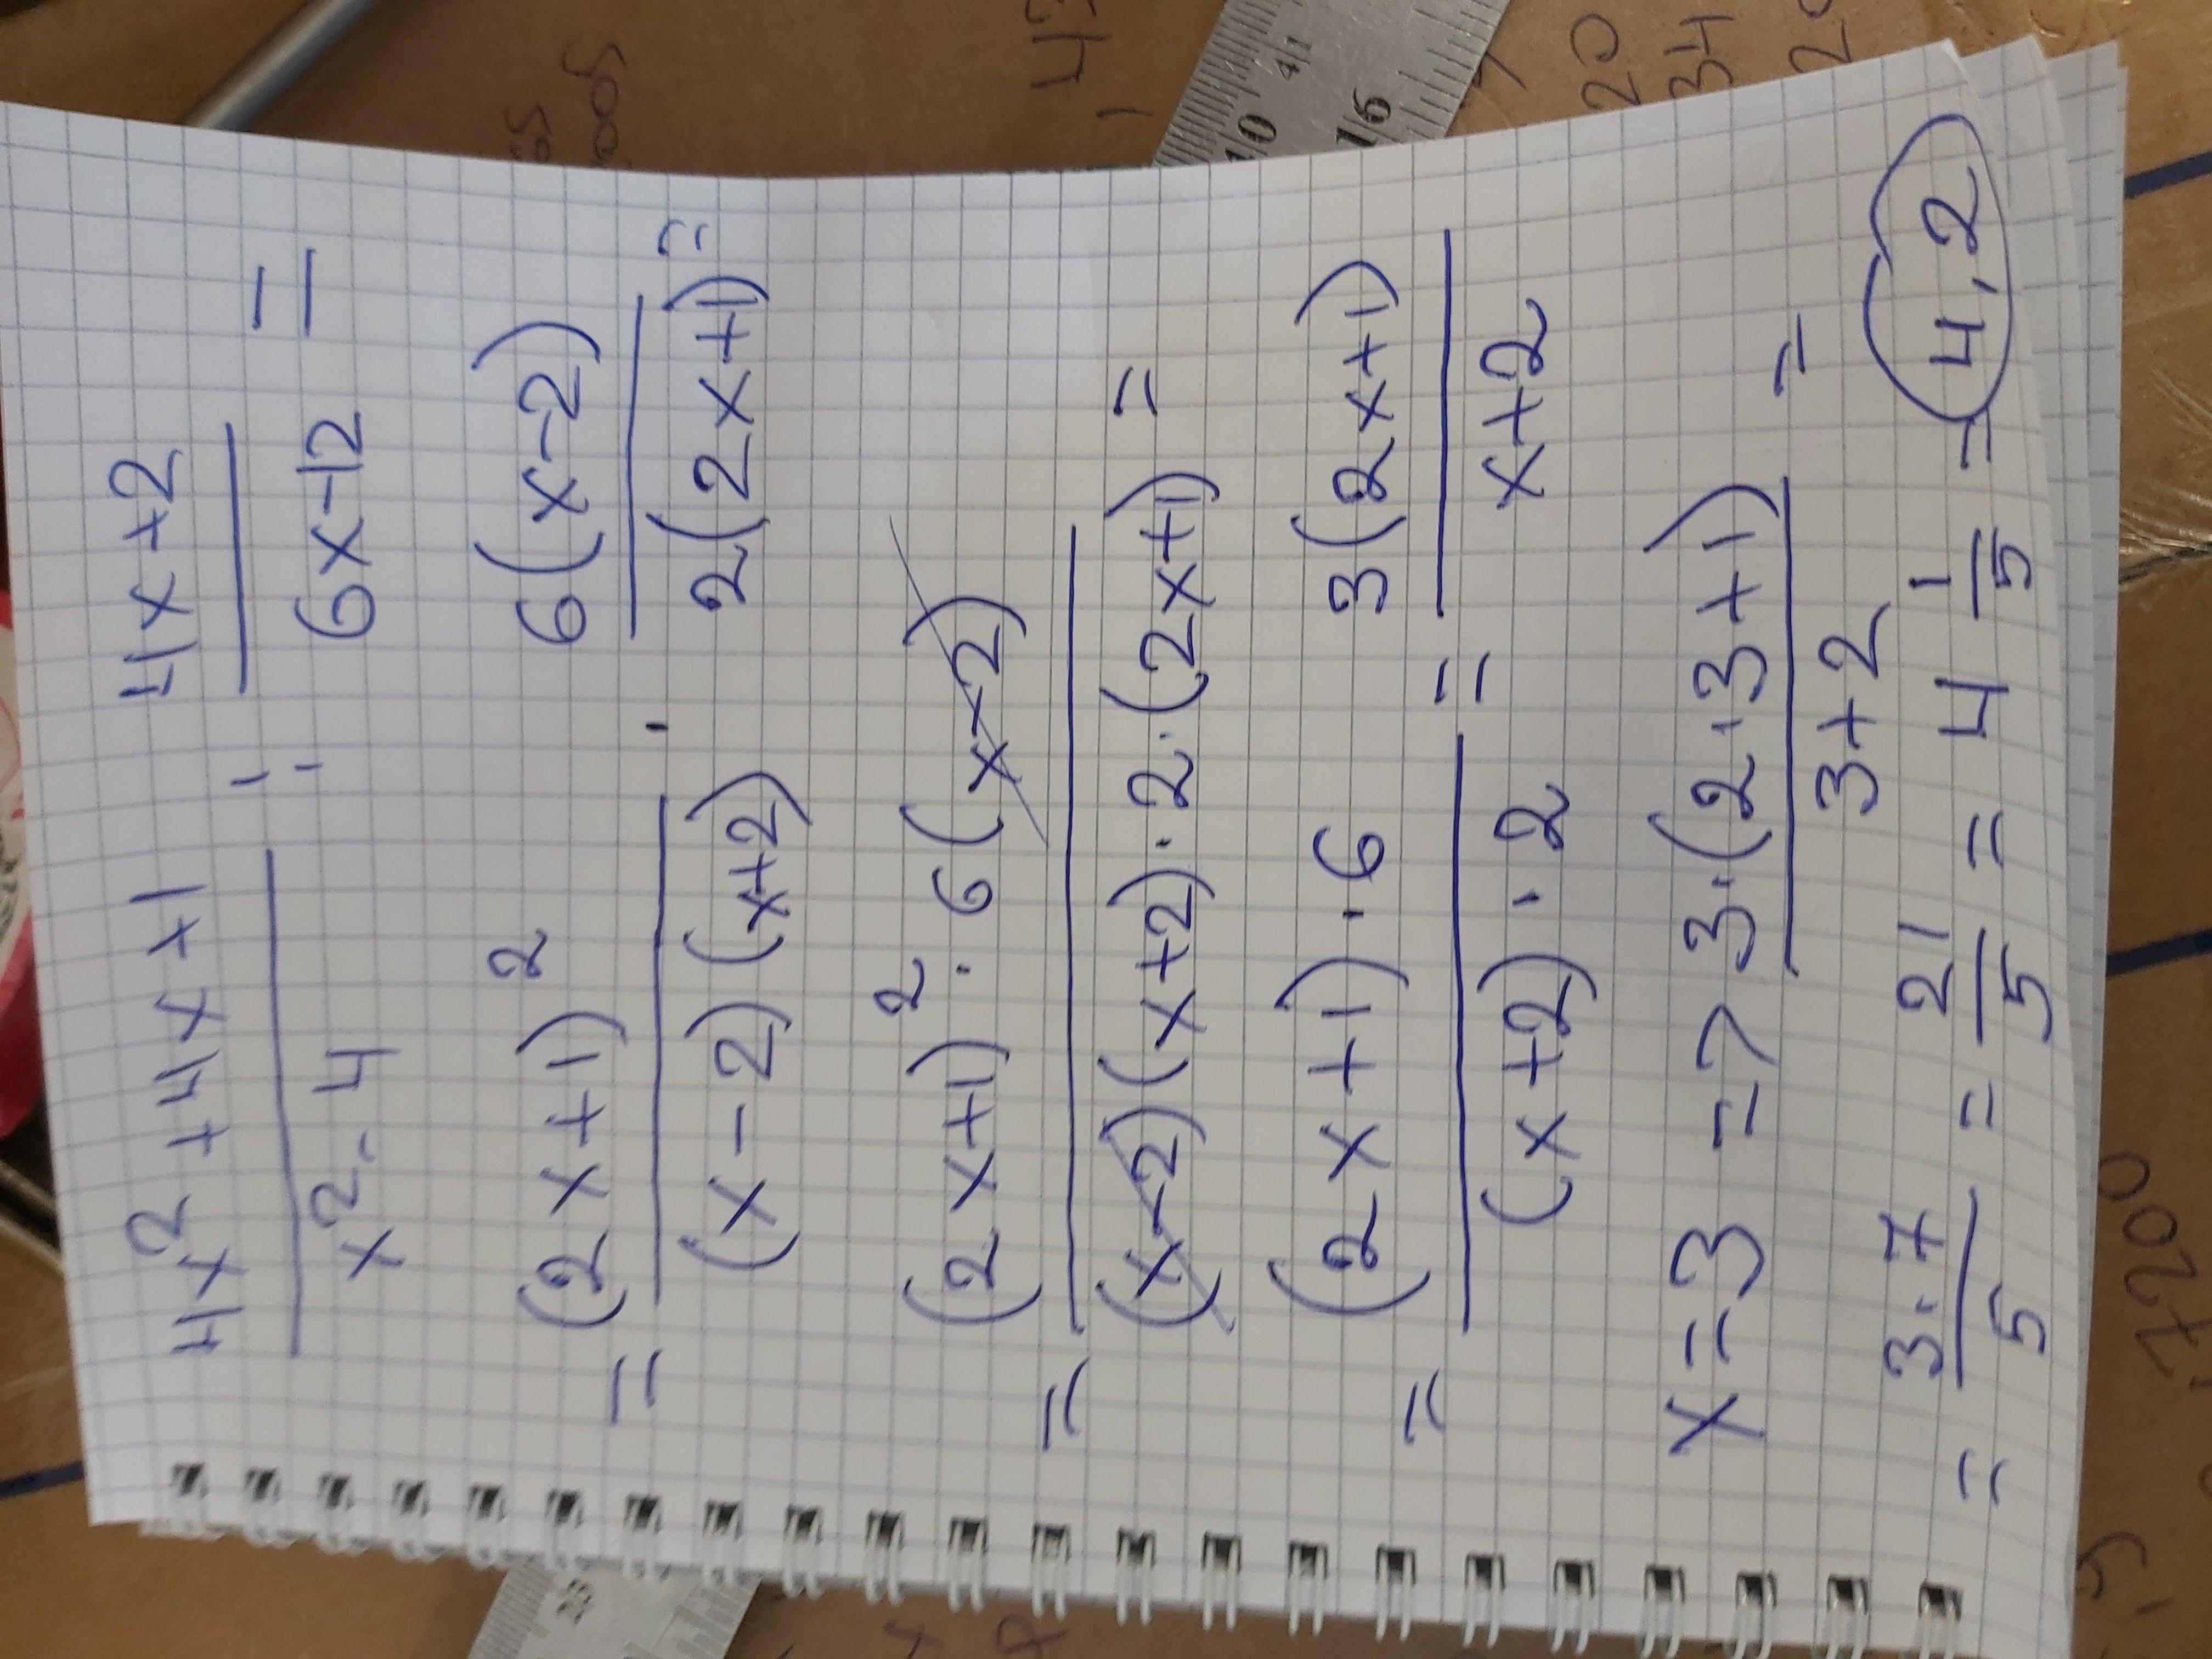 4x² + 4x + 1 / x² - 4 : 4x + 2 / 6x - 12 =
= (2x+1)² / (x-2)(x+2) · 6(x-2) / 2(2x+1) =
= (2x+1)² · 6(x-2) / (x-2)(x+2) · 2 · (2x+1) =
= (2x+1) · 6 / (x+2) · 2 = 3(2x+1) / x+2
x = 3 => 3 · (2·3+1) / 3+2 =
= 3·7 / 5 = 21 / 5 = 4 1/5 = 4,2
10
16
20
34
7200